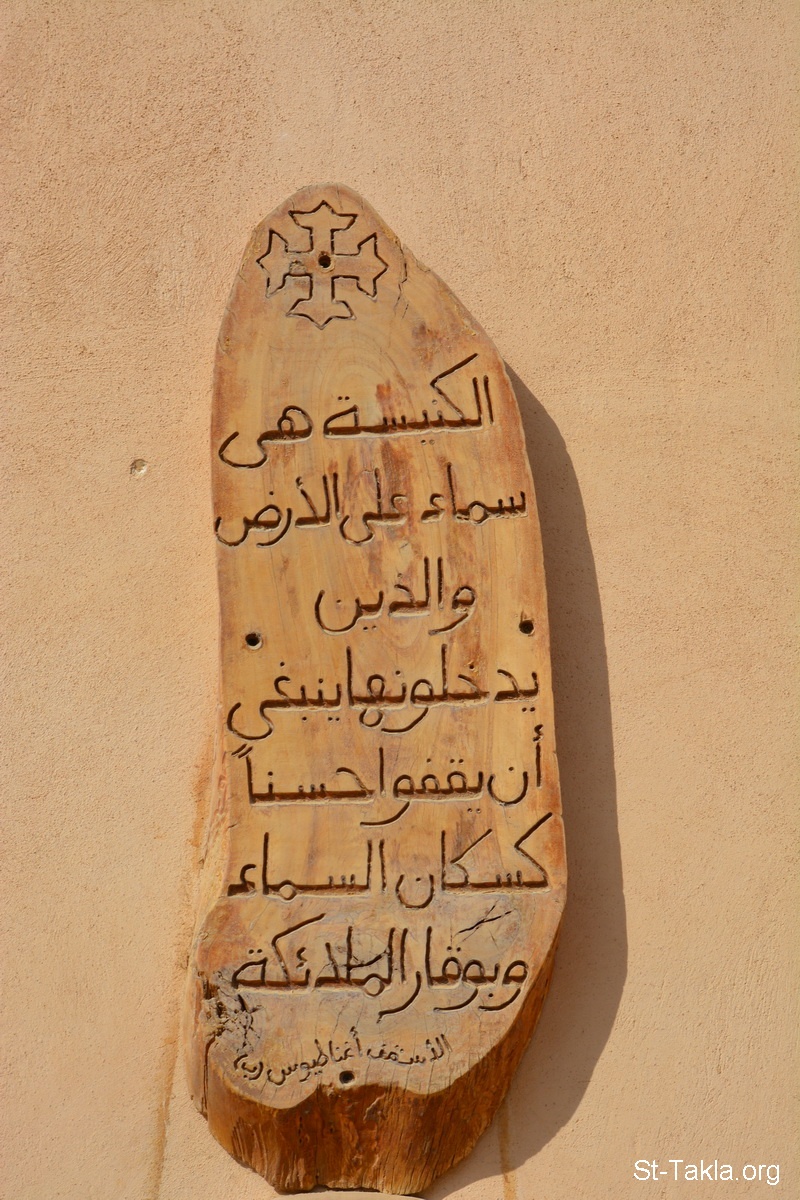 الكنيسة هى
سماء على الأرض
والذين
يدخلونها ينبغى
أن يقفوا حسناً
كسكان السماء
وبوقار الملائكة
الأسقف أغناطيوس
St-Takla.org